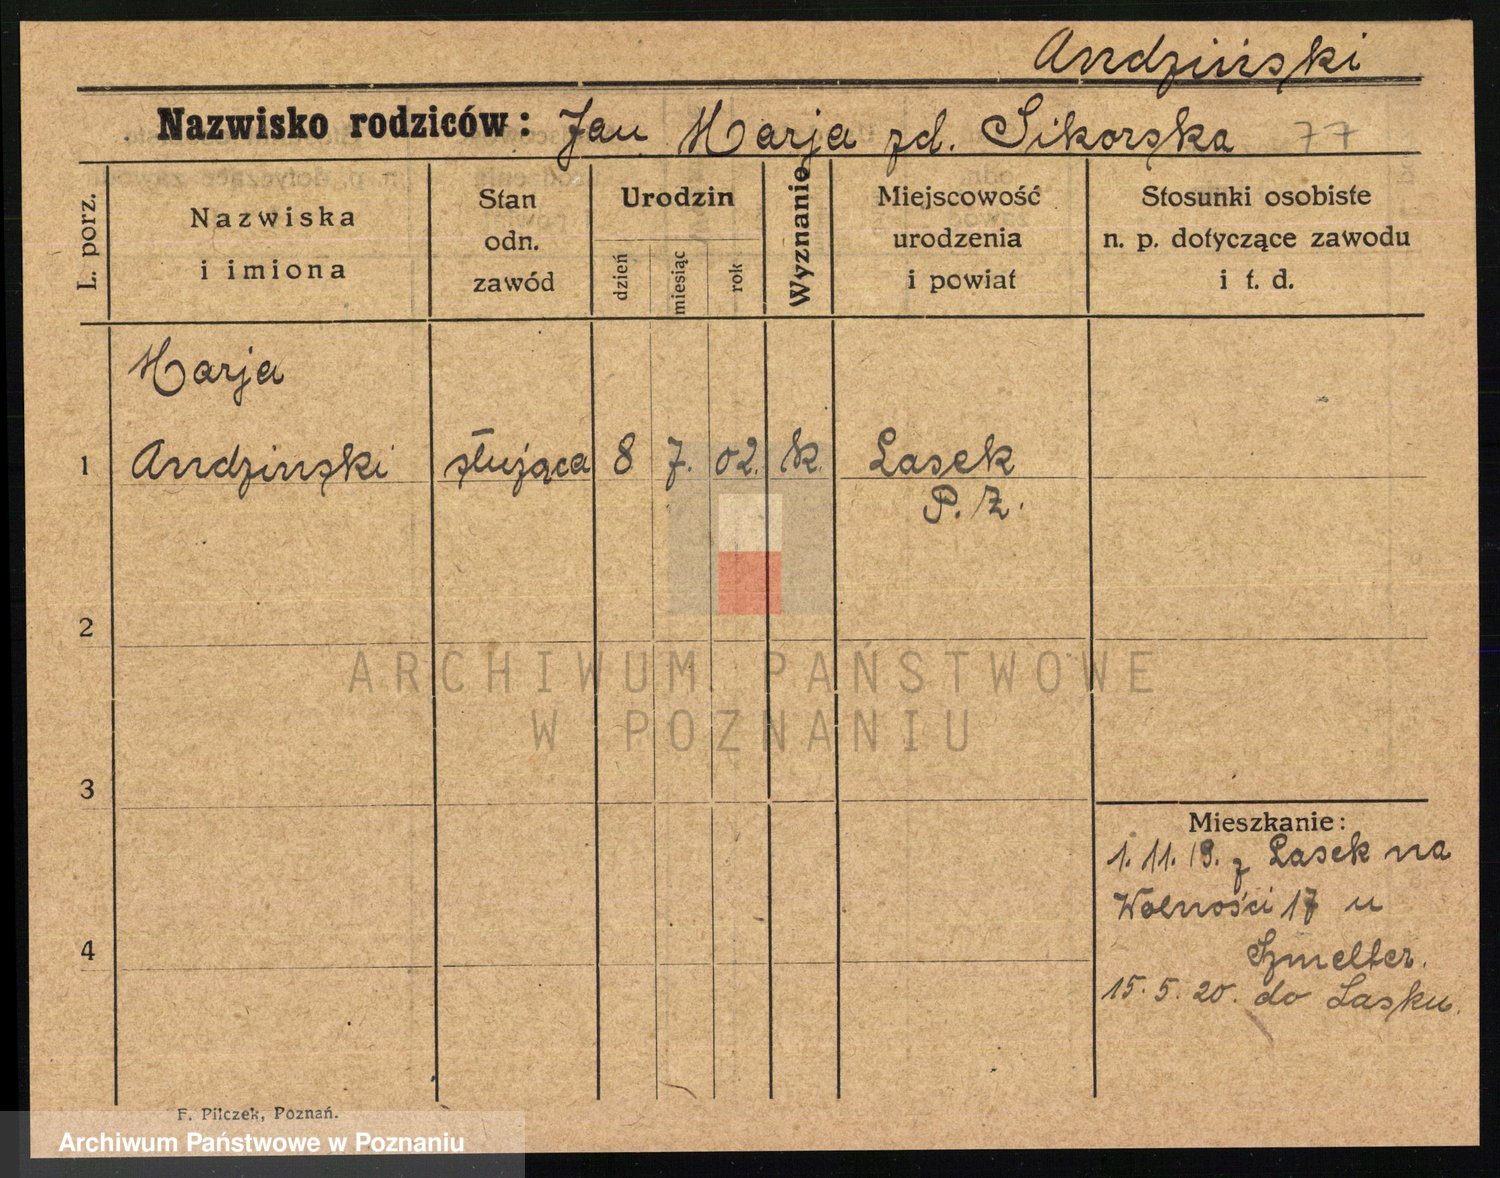 Andziński
Nazwisko rodziców: Jan Marja zd. Sikorska 77
L. porz.
Nazwiska
i imiona
Stan
odn.
zawód
Urodzin
dzień
miesiąc
rok
Wyznanie
Miejscowość
urodzenia
i powiat
Stosunki osobiste
n. p. dotyczące zawodu
i t. d.
Marja
1 Andzinski służąca 8 7. 02. k. Lasek
P. Z.
2
ARCHIWUM PAŃSTWOWE
W POZNANIU
3
Mieszkanie:
1. 11. 19. z Lasek na
Wolności 17 u
4
Szmelter.
15. 5. 20. do Lasku.
F. Pilczek, Poznań.
Archiwum Państwowe w Poznaniu